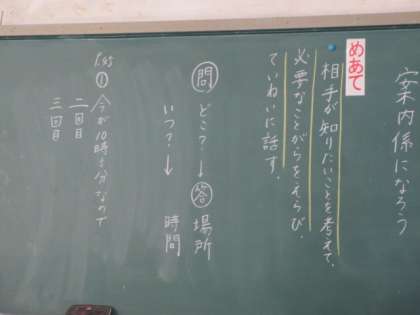 案内係になろう
めあて
相手が知りたいことを考えて、
必要なことがらをえらび、
ていねいに話す。
問 どこ?→答 場所
いつ?→ 時間
P.95
① 今が10時5分なので
二回目
三回目